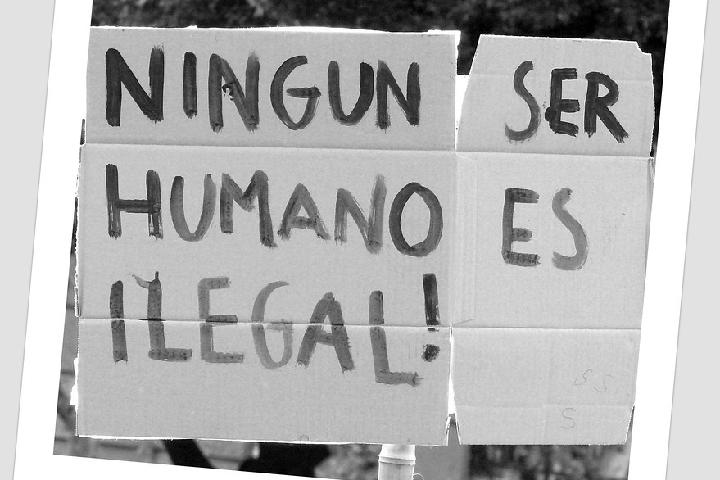 NINGUN SER
HUMANO ES
ILEGAL!
S S
S